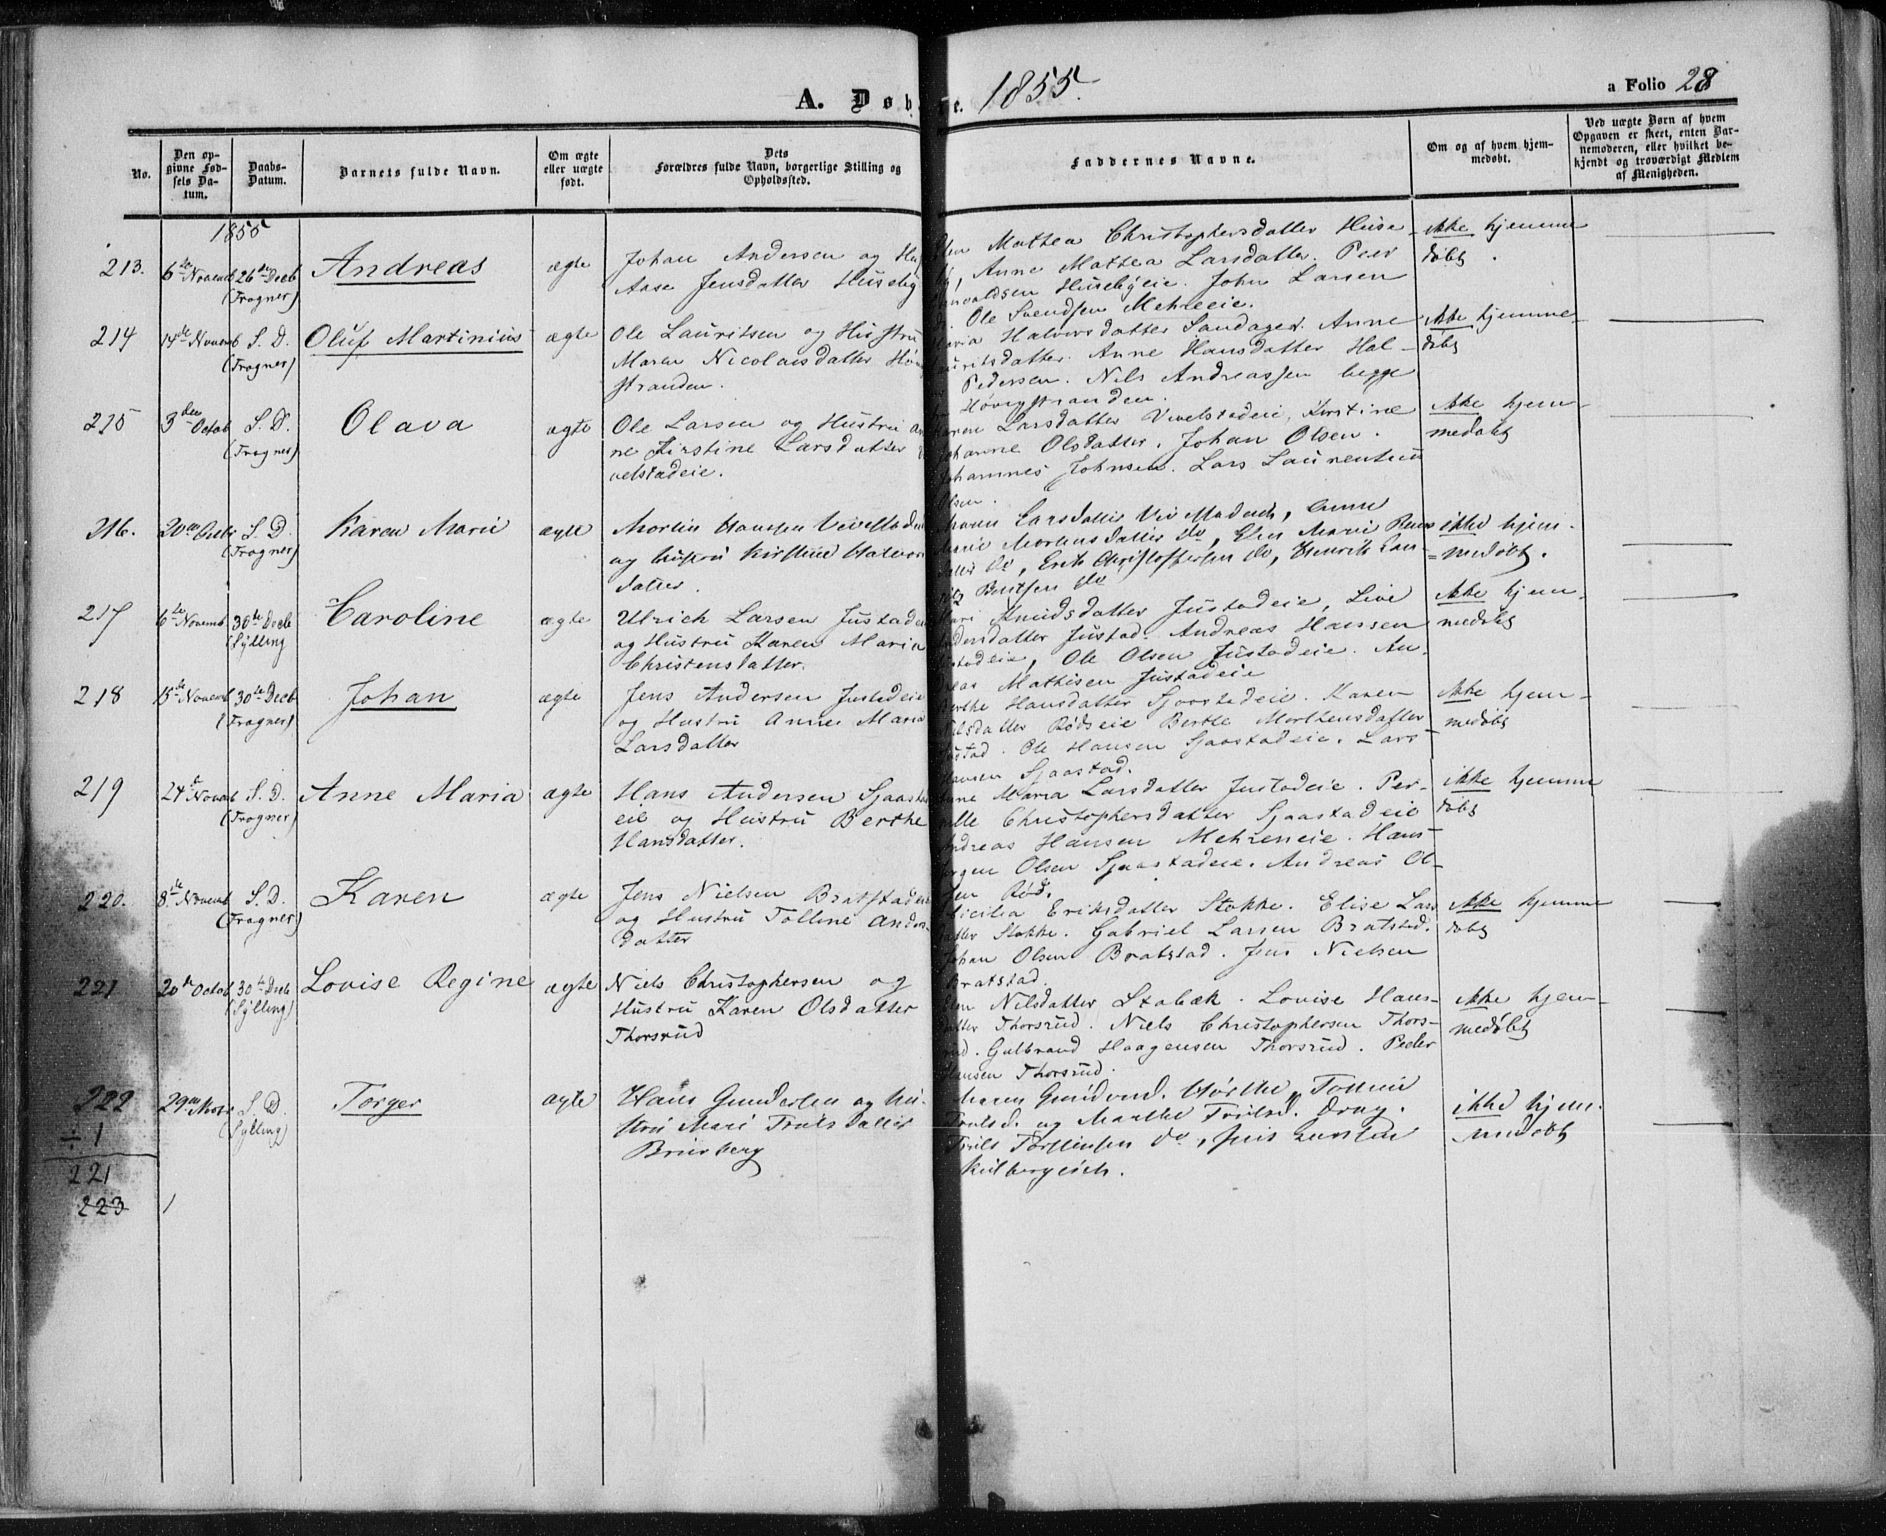 A. Døb e. 1855.
a Folio 28
No.
Den opgivne Fødsels Datum.
Daabs-Datum.
Barnets fulde Navn.
Om ægte eller uægte født.
Dets Forældres fulde Navn, borgerlige Stilling og Opholdssted.
Faddernes Navne.
Om og af hvem hjemmedøbt.
Ved uægte Børn af hvem Opgaven er skeet, enten Barnemoderen, eller hvilket bekjendt og troværdigt Medlem af Menigheden.
1855
213. 6te Novemb 26de Decb (Frogner) Andreas ægte
Johan Andersen og Hu
Aase Jensdatter Huseby
Mathea Christophersdatter Huse
Anne Mathea Larsdatter. Peer
Husebyeie. John Larsen
Ole Svendsen Mehreeie.
ikke hjemme
døbt.
214 14de Novemb S. D. (Frogner) Oluf Martinius ægte
Ole Lauritsen og Hustru
Maren Nicolaisdatter Høv
stranden.
Maria Halvorsdatter Sandager. Anne
Lauritsdatter. Anne Hansdatter Hal-
Pedersen. Nils Andreassen begge
Høvigstranden.
ikke hjemme-
døbt
215 3die Octob S. D. (Frogner) Olava ægte
Ole Larsen og Hustru An
ne Kirstine Larsdatter
velstadeie.
Karen Larsdatter Vivelstadeie, Kirstine
Johanne Olsdatter. Johan Olsen.
Johannes Johnsen. Lars Laurentius
Olsen.
ikke hjem-
medøbt
216. 20de Octb S. D. (Frogner) Karen Marie ægte
Morten Hansen Vivelstad
og hustru Kirstine Halvor
datter.
Maren Larsdatter Vivelstadeie, Anne
Marie Mortensdatter do, Elen Marie
datter do, Erik Christoffersen do, Henrik Lau-
ritz Bentsen do
ikke hjem-
medøbt.
217 6te Novemb. 30te Decb (Sylling Caroline ægte
Ulrich Larsen Justadeie
og Hustru Karen Maria
Christensdatter.
Mari Knudsdatter Justadeie, Live
Andersdatter Justad. Andreas Hansen
Justadeie, Ole Olsen Justadeie. An-
dreas Mathisen Justadeie
ikke hjem-
medøbt
218 15de Novemb 30te Decb (Frogner) Johan ægte
Jens Andersen Justadeie
og Hustru Anne Maria
Larsdatter
Berthe Hansdatter Sjaastadeie. Karen
Nilsdatter Rødseie Berthe Morthensdatter
Justad. Ole Hansen Sjaastadeie. Lars
Hansen Sjaastad.
ikke hjem-
medøbt
219 24de Novemb S. D. (Frogner) Anne Maria ægte
Hans Andersen Sjaasta
eie og Hustru Berthe
Hansdatter.
Anne Maria Larsdatter Justadeie. Per-
nille Christophersdatter Sjaastadeie
Andreas Hansen Mehreneie. Hans
Jørgen Olsen Sjaastadeie. Andreas Ol-
sen Rød.
ikke hjemme
døbt
220. 8de Novemb S. D. (Frogner) Karen ægte
Jens Nielsen Bratstadeie
og Hustru Tolline Anders-
datter
Cicilia Eriksdatter Stokke. Elise Lars
datter Stokke. Gabriel Larsen Bratstad.
Johan Olsen Bratstad. Jens Nielsen
Bratstad.
ikke hjemme
døbt
221 20de Octob 30te Decb (Sylling) Lovise Regine ægte
Niels Christophersen og
Hustru Karen Olsdatter
Thorsrud
Elen Nilsdatter Stabæk. Lovise Hans-
datter Thorsrud. Niels Christophersen Thors-
rud. Gulbrand Haagensen Thorsrud. Peder
Hansen Thorsrud.
ikke hjem-
medøbt
222 29de Novr S. D. (Sylling) Torger ægte
Hans Gundersen og hu-
stru Mari Truls datter
Maren Hørthe, Tolline
Trulsd. og Marthe Trulsd. Drag.
Truls Torstensen do, Jens
ikke hjem-
medøbt
÷ 1
221
223 1